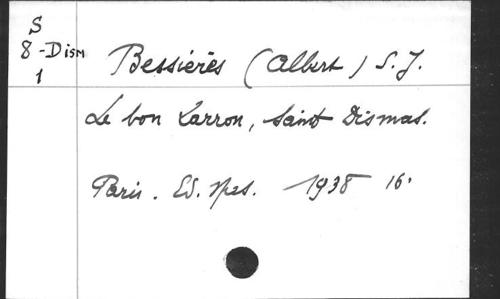 S
8-Dism
1
Bessières (Albert) S.J.
Le bon Larron, Saint Dismas.
Paris. Ed. Spes. 1938 16°